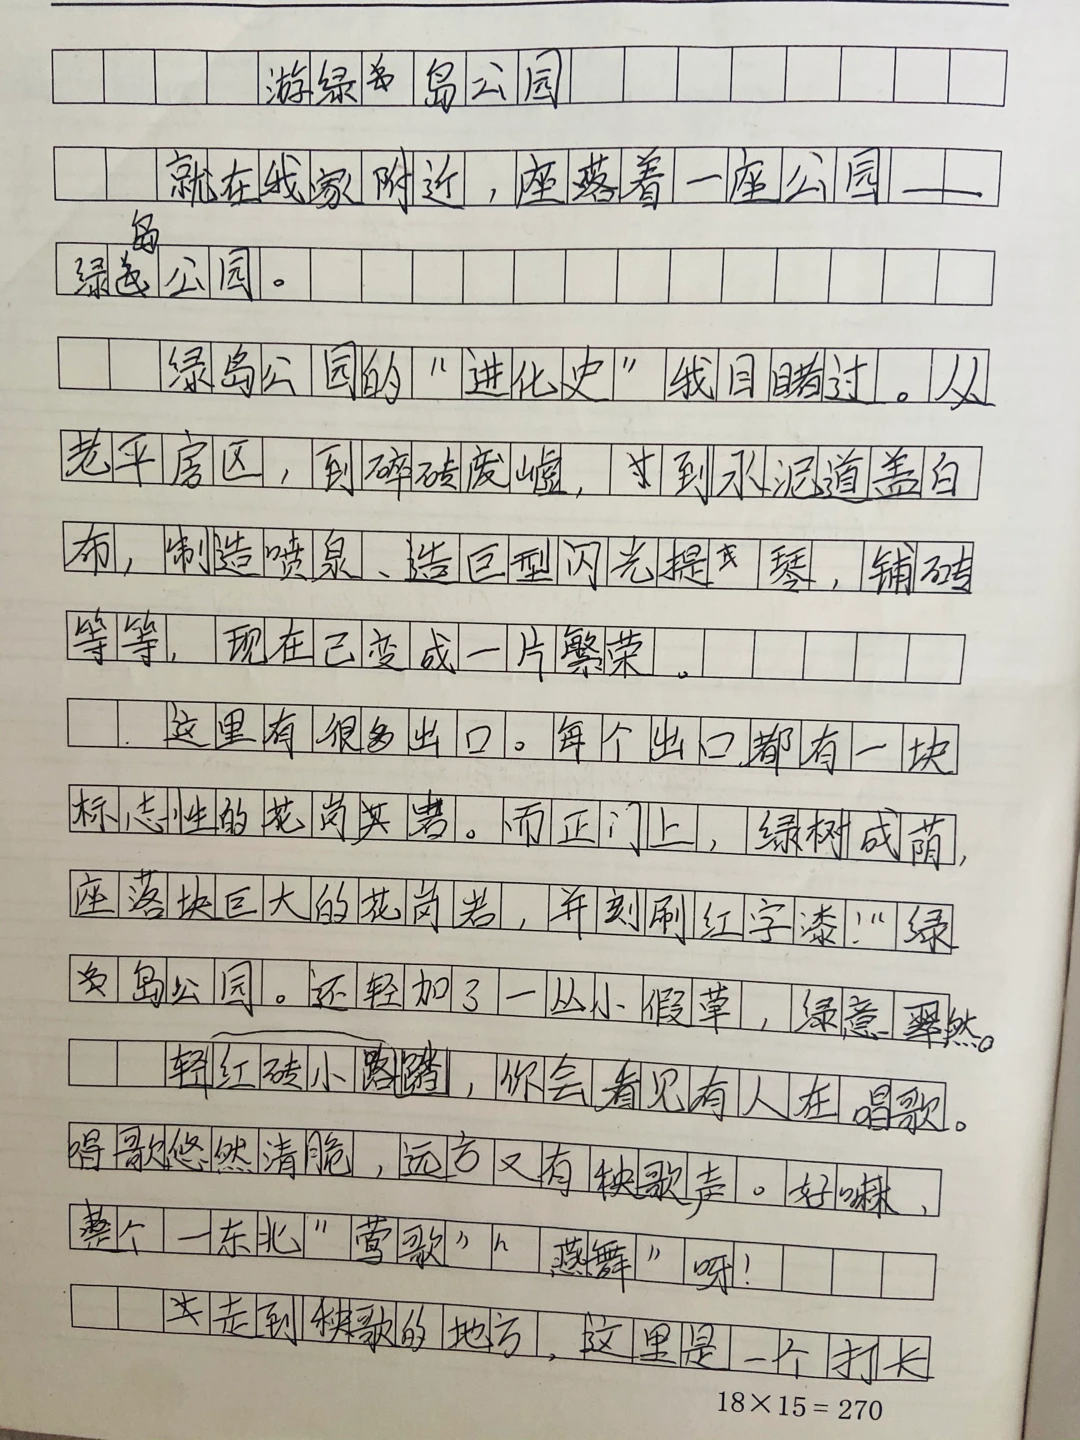 游绿岛公园
就在我家附近，座落着一座公园——
绿岛公园。
绿岛公园的“进化史”我目睹过。从
老平房区，到碎砖废墟，到水泥道盖白
布，制造喷泉、造巨型闪光提琴，铺砖
等等，现在已变成一片繁荣。
这里有很多出口。每个出口都有一块
标志性的花岗岩。而正门上，绿树成荫，
座落块巨大的花岗岩，并刻刷红字漆！“绿
岛公园。还轻加了一丛小假草，绿意盎然。
轻踏红砖小路，你会看见有人在唱歌。
唱歌悠然清脆，远方又有秧歌声。好嘛，
整个一东北”莺歌”“燕舞”呀！
走到秧歌的地方，这里是一个打长
18×15=270